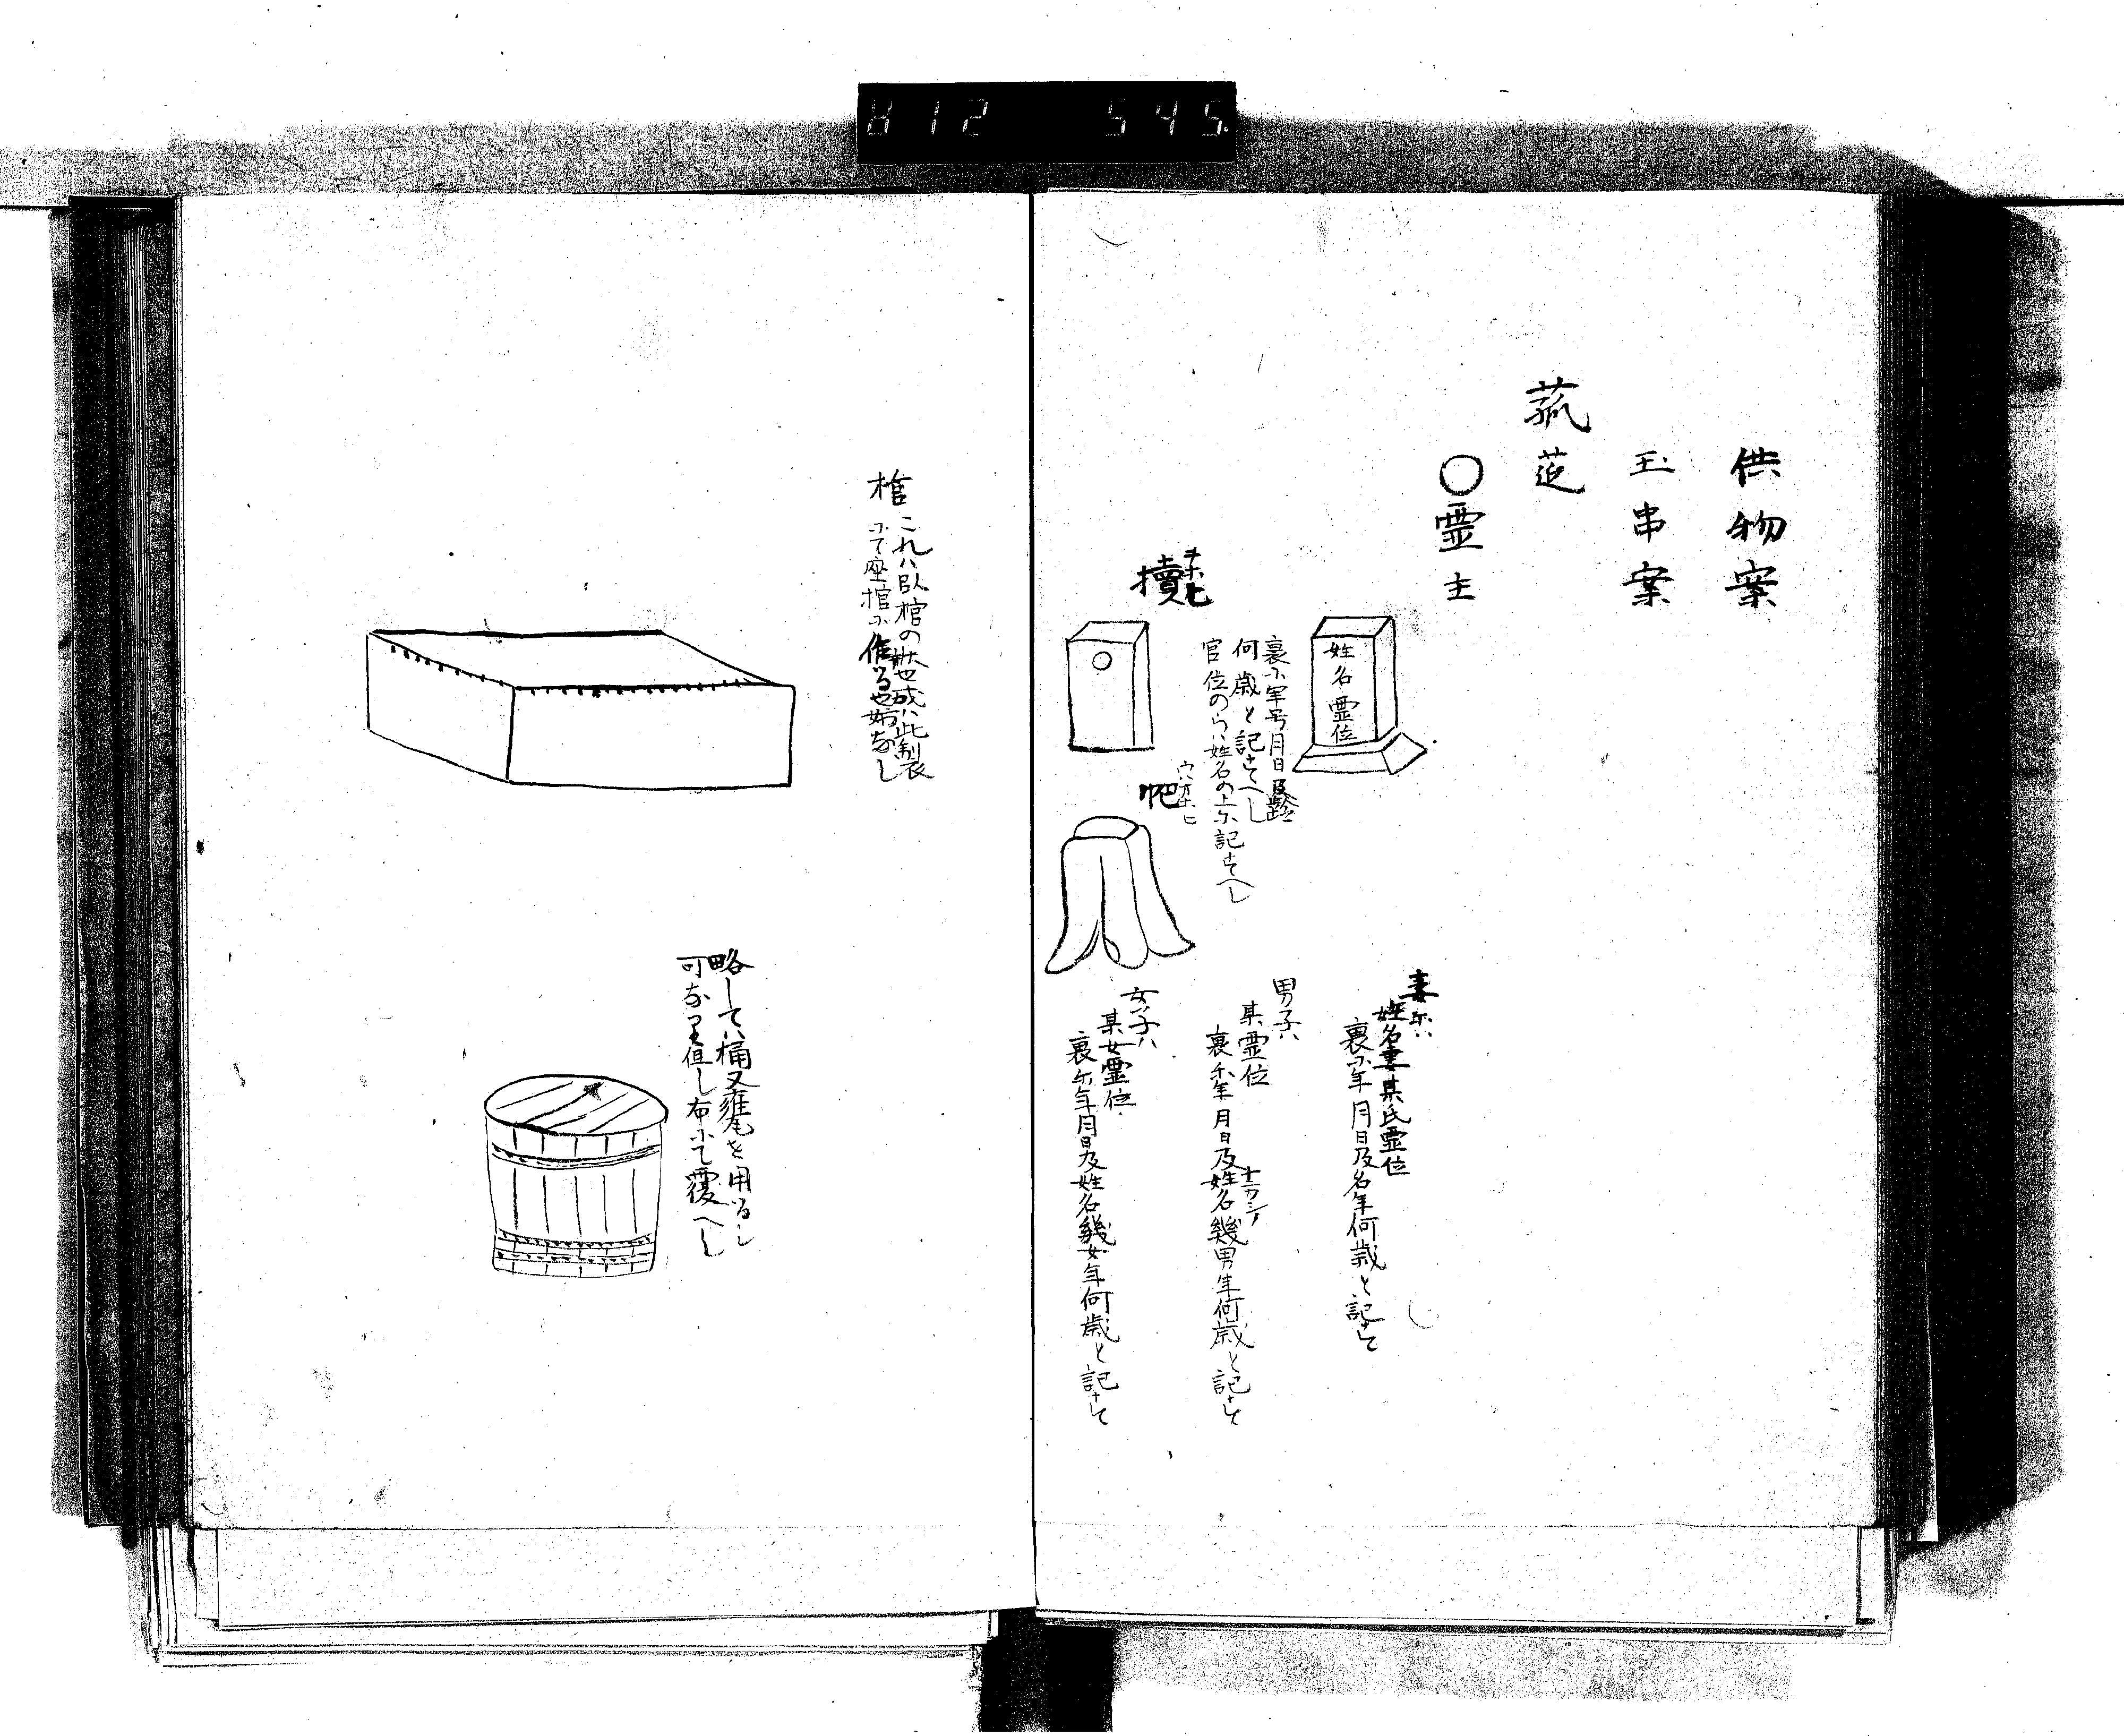 812 545
供物案
玉串案
菰莚
○霊主
姓名霊位
裏ニ年号月日及齢
何歳と記すへし
官位のらハ姓名の上に記すへし
妻ニハ
姓名妻某氏霊位
裏ニ年月日及名年何歳と記すへし
男子ハ
某霊位
裏ニ年月日及姓名幾男年何歳と記すへし
女子ハ
某女霊位
裏ニ年月日及姓名幾女年何歳と記すへし
棺
これハ臥棺の状也或ハ此製
にて座棺に作るも妨なし
略してハ桶又甕を用るし
可なり但し布にて覆へし